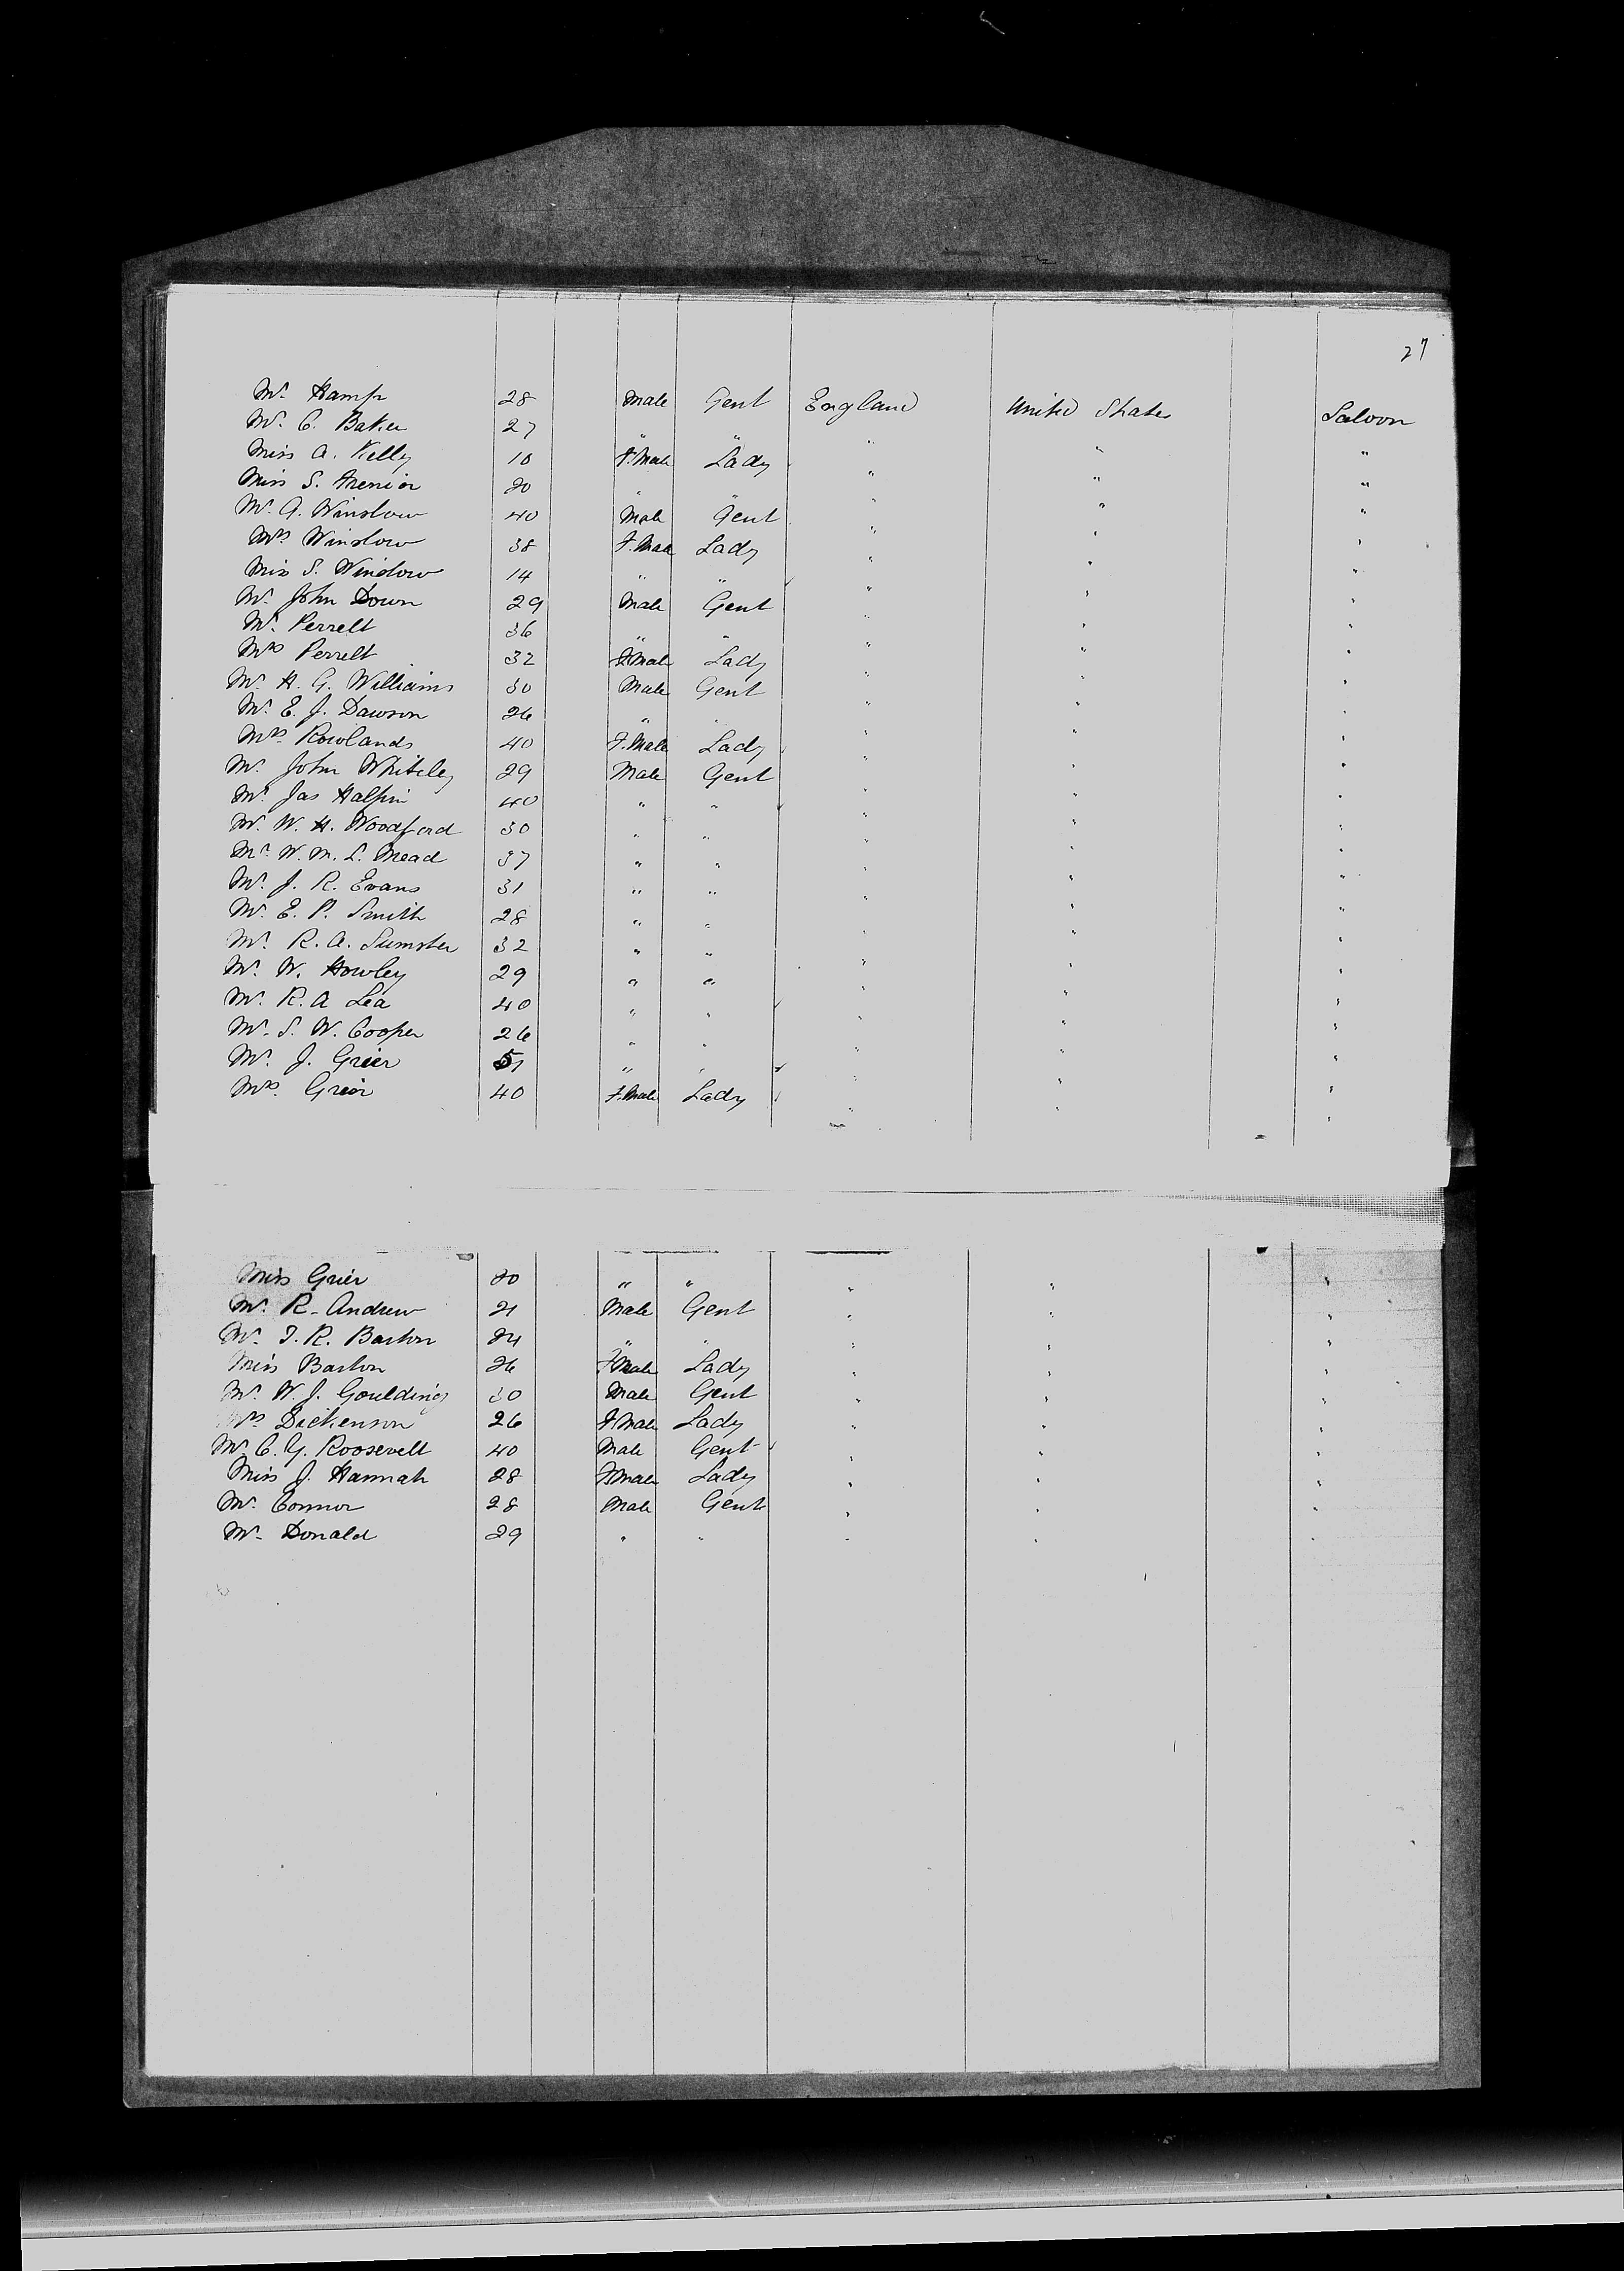 27
Mr. Hamp 28 Male Gent England United States Saloon
Mr. C. Baker 27 " " " " "
Miss A. Kelly 10 F.Male Lady " " "
Miss S. 20 " " " " "
Mr. A. Winslow 40 Male Gent " " "
Mrs Winslow 38 F.Male Lady " " "
Miss S. Winslow 14 " " " " "
Mr. John Down 29 Male Gent " " "
Mr. Perrelt 36 " " " " "
Mrs Perrelt 32 F.Male Lady " " "
Mr. H. G. Williams 30 Male Gent " " "
Mr. E. J. Dawson 26 " " " " "
Mrs Rowlands 40 F.Male Lady " " "
Mr. John Whiteley 29 Male Gent " " "
Mr. Jas Halpin 40 " " " " "
Mr. W. H. Woodford 30 " " " " "
Mr. W. M. L. Mead 37 " " " " "
Mr. J. R. Evans 31 " " " " "
Mr. E. P. Smith 28 " " " " "
Mr. R. A. Sumster 32 " " " " "
Mr. W. Howley 29 " " " " "
Mr. R. A Lea 40 " " " " "
Mr. S. W. Cooper 26 " " " " "
Mr. J. Grier 51 " " " " "
Mrs. Grier 40 F.Male Lady " " "
Miss Grier 20 " " " " "
Mr. R. Andrew 21 Male Gent " " "
Mr. T. R. Barton 24 " " " " "
Miss Barton 26 F.Male Lady " " "
Mr. W. J. Goulding 30 Male Gent " " "
Mrs Dickenson 26 F.Male Lady " " "
Mr. C. Y. Roosevelt 40 Male Gent " " "
Miss J. Hannah 28 F.Male Lady " " "
Mr. Connor 28 Male Gent " " "
Mr. Donald 29 " " " " "